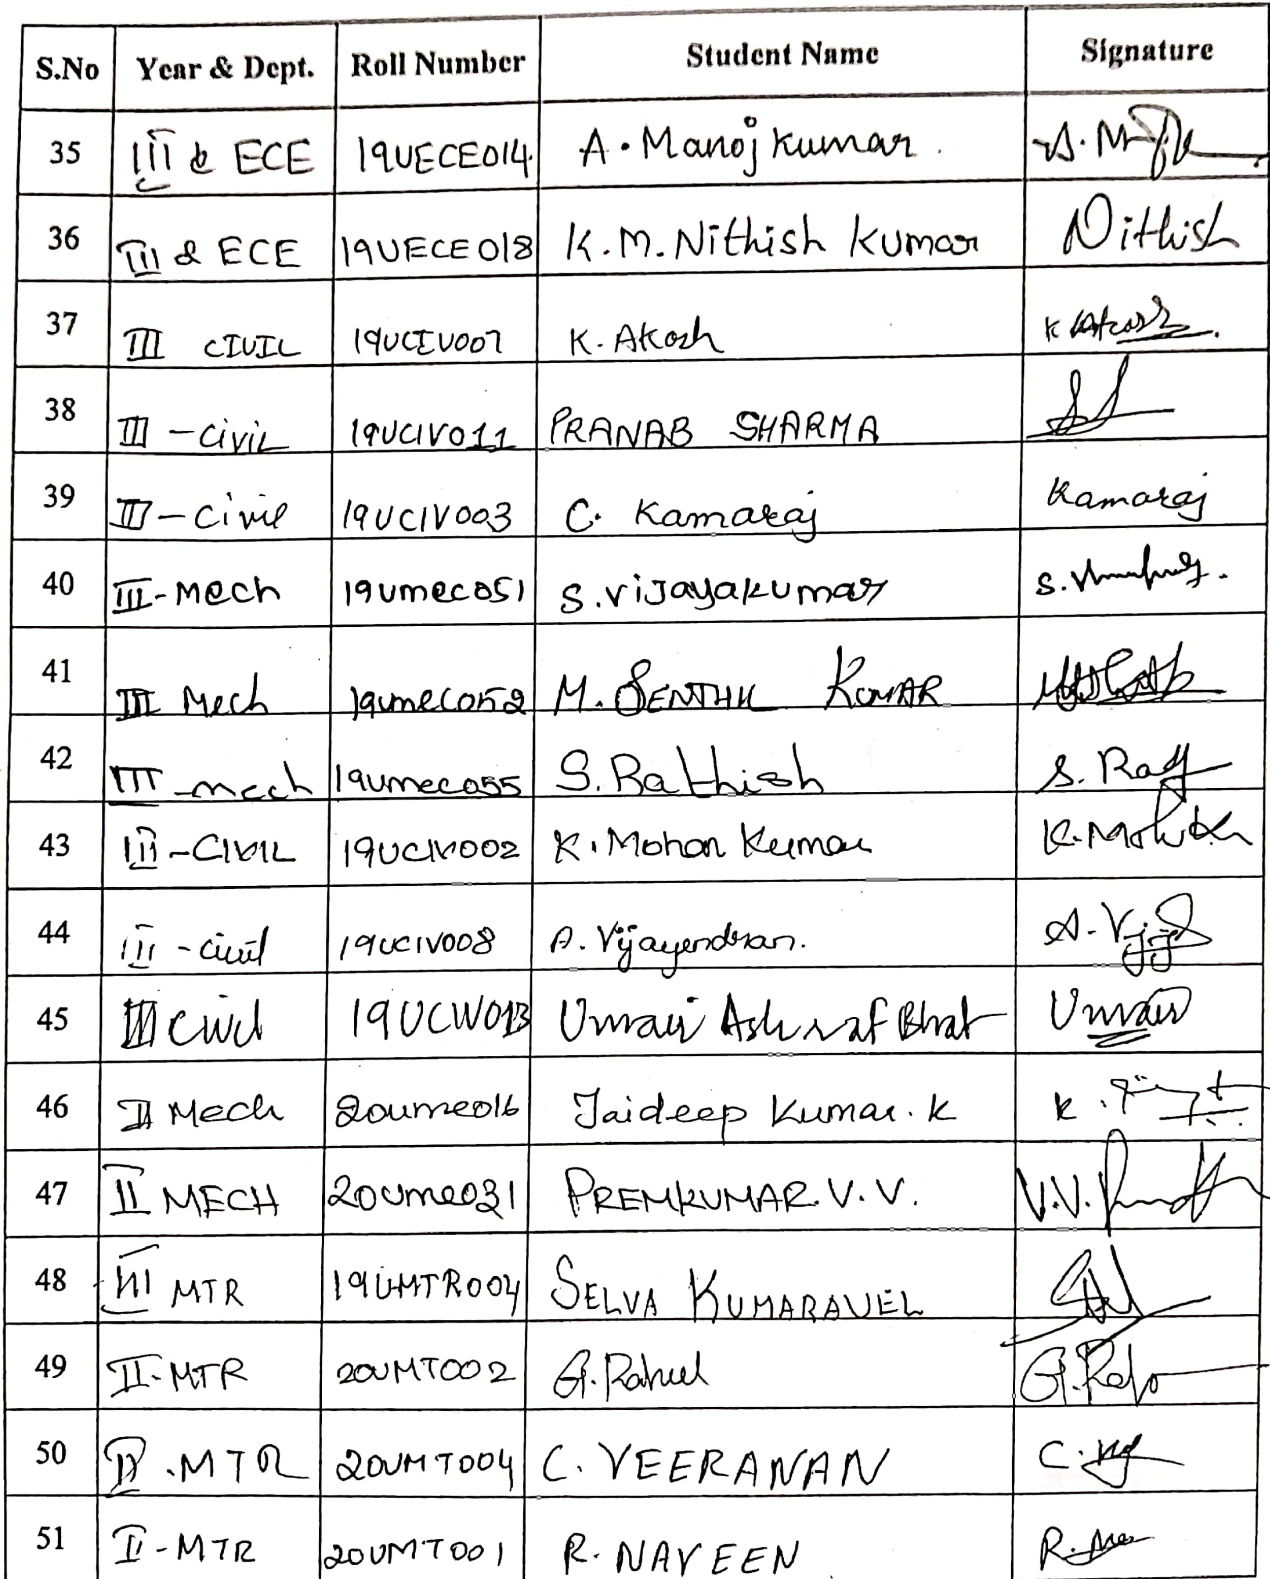 S.No Year & Dept. Roll Number Student Name Signature
35 III & ECE 19UECE014 A. Manoj Kumar.
36 III & ECE 19UECE018 K.M. Nithish Kumar Nithish
37 III CIVIL 19UCIV007 K. Akash K Akash
38 III - Civil 19UCIV011 PRANAB SHARMA
39 III - Civil 19UCIV003 C. Kamaraj Kamaraj
40 III - Mech 19umec051 S. Vijayakumar
41 III Mech 19umec052 M. SENTHIL KUMAR
42 III - mech 19umec055 S. Rathish
43 III - CIVIL 19UCIV002 K. Mohan Kumar
44 III - civil 19UCIV008 A. Vijayendran.
45 III Civil 19UCIV013 Umair Ashraf Bhat Umair
46 II Mech 20ume016 Jaideep Kumar. K
47 II MECH 20ume031 PREMKUMAR. V. V.
48 III MTR 19UMTR004 SELVA KUMARAVEL
49 II - MTR 20UMT002 G. Rahul
50 II . MTR 20UMT004 C. VEERANAN
51 II - MTR 20UMT001 R. NAVEEN